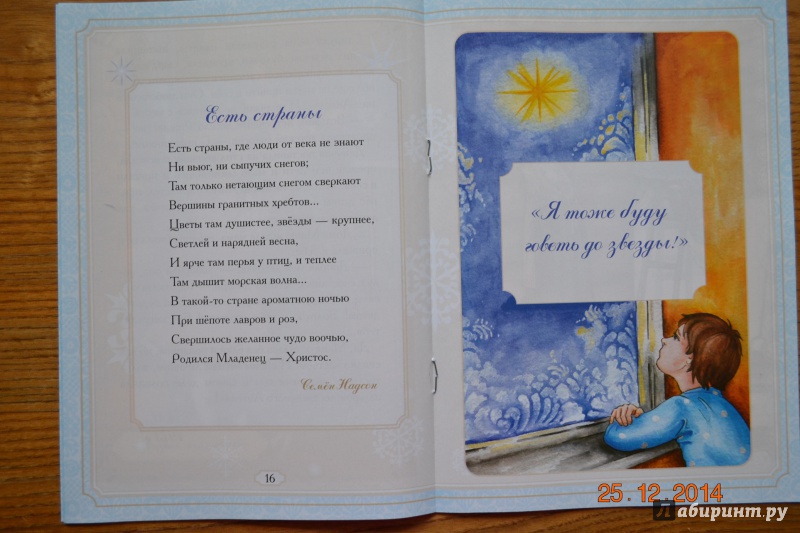 Есть страны
Есть страны, где люди от века не знают
Ни вьюг, ни сыпучих снегов;
Там только нетающим снегом сверкают
Вершины гранитных хребтов...
Цветы там душистее, звёзды — крупнее,
Светлей и нарядней весна,
И ярче там перья у птиц, и теплее
Там дышит морская волна...
В такой-то стране ароматною ночью
При шёпоте лавров и роз,
Свершилось желанное чудо воочью,
Родился Младенец — Христос.
Семён Надсон
16
«Я тоже буду
говеть до звезды!»
25.12.2014
Лабиринт.ру